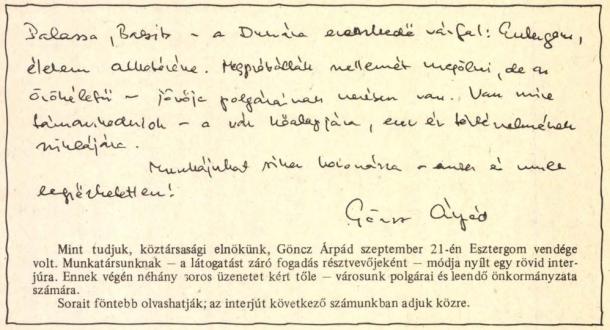 Balassa, Babits – a Dunára ereszkedő várfal: Esztergom,
életem alkotórésze. Megpróbálták szellemét megölni, de az
örökéletű – jövője polgárainak kezében van. Van mire
támaszkodniok – a vár kőalapjára, ezer év történelmének
sziklájára.
Munkájukat siker koronázza –
legyőzhetetlen!
Göncz Árpád
Mint tudjuk, köztársasági elnökünk, Göncz Árpád szeptember 21-én Esztergom vendége
volt. Munkatársunknak – a látogatást záró fogadás résztvevőjeként – módja nyílt egy rövid inter-
júra. Ennek végén néhány soros üzenetet kért tőle – városunk polgárai és leendő önkormányzata
számára.
Sorait föntebb olvashatják; az interjút következő számunkban adjuk közre.